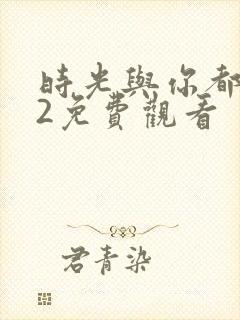 時光與你都
2免費觀看
君青染